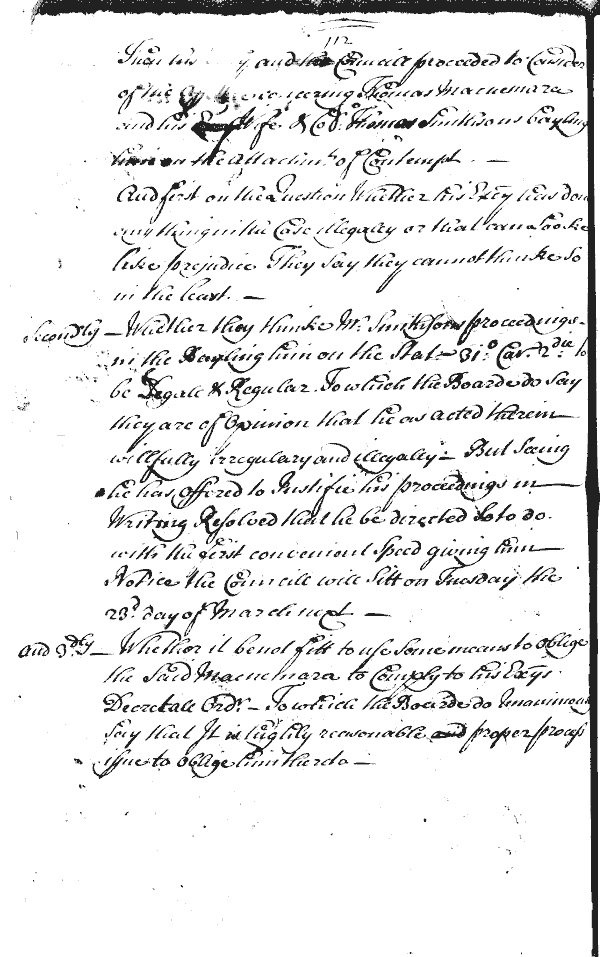 112
and the Councill proceeded to Consider
of the concerning Thomas Macnemara
and his Wife & Coll. Thomas Smithsons bayling
him on the Attachmt. of Contempt. —
And first on the Question Whether his Excy has done
any thing in the Case illegally or that can looke
like prejudice They say they cannot thinke so
in the least. —
Secondly — Whether they thinke Mr. Smithsons proceedings
in the Bayling him on the Stat— 31.o Car. 2.die to
be Legale & Regular To which the Boarde do say
they are of Opinion that he as acted therein
willfully irregulary and illegally — But Seeing
he has Offered to Justifie his proceedings in
Writing Resolved that he be directed so to do
with the first convenient Speed giving him
Notice the Councill will Sitt on Tuesday the
23d. day of March next —
And 3dly — Whether it be not fitt to use some means to oblige
the Said Macnemara to Comply to his Excys
Decretale Ordr — To which the Boarde do Unanimously
say that It is highly reasonable and proper process
issue to oblige him thereto —